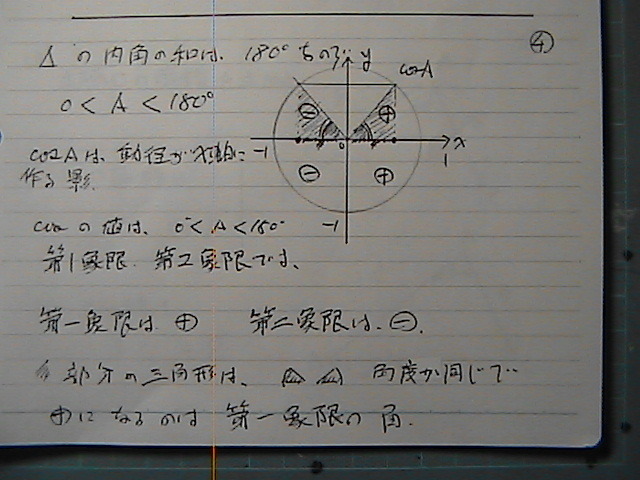 ④
△の内角の和は、180°なので
y
cosA
0<A<180°
⊖ ⊕
-1 0 1 x
cosAは、動径がx軸に
作る影
⊖ ⊕
cosの値は、0°<A<180° -1
第1象限、第2象限では、
第一象限は ⊕ 第二象限は、⊖.
部分の三角形は、 角度が同じで
⊕になるのは 第一象限の角.